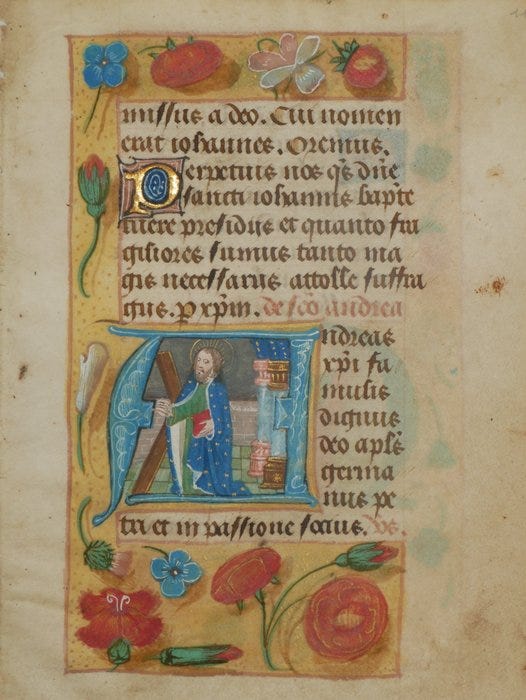 missus a deo. Cui nomen
erat iohannes. Oremus.
Perpetuis nos qs dne
sancti iohannis bapte
tuere presidiis et quanto fra
giliores sumus tanto ma
gis necessariis attolle suffra
giis. p xpm. de sco andrea
Andreas
xpi fa
mulis
dignus
deo apls
germa
nus pe
tri et in passione socius. vs.